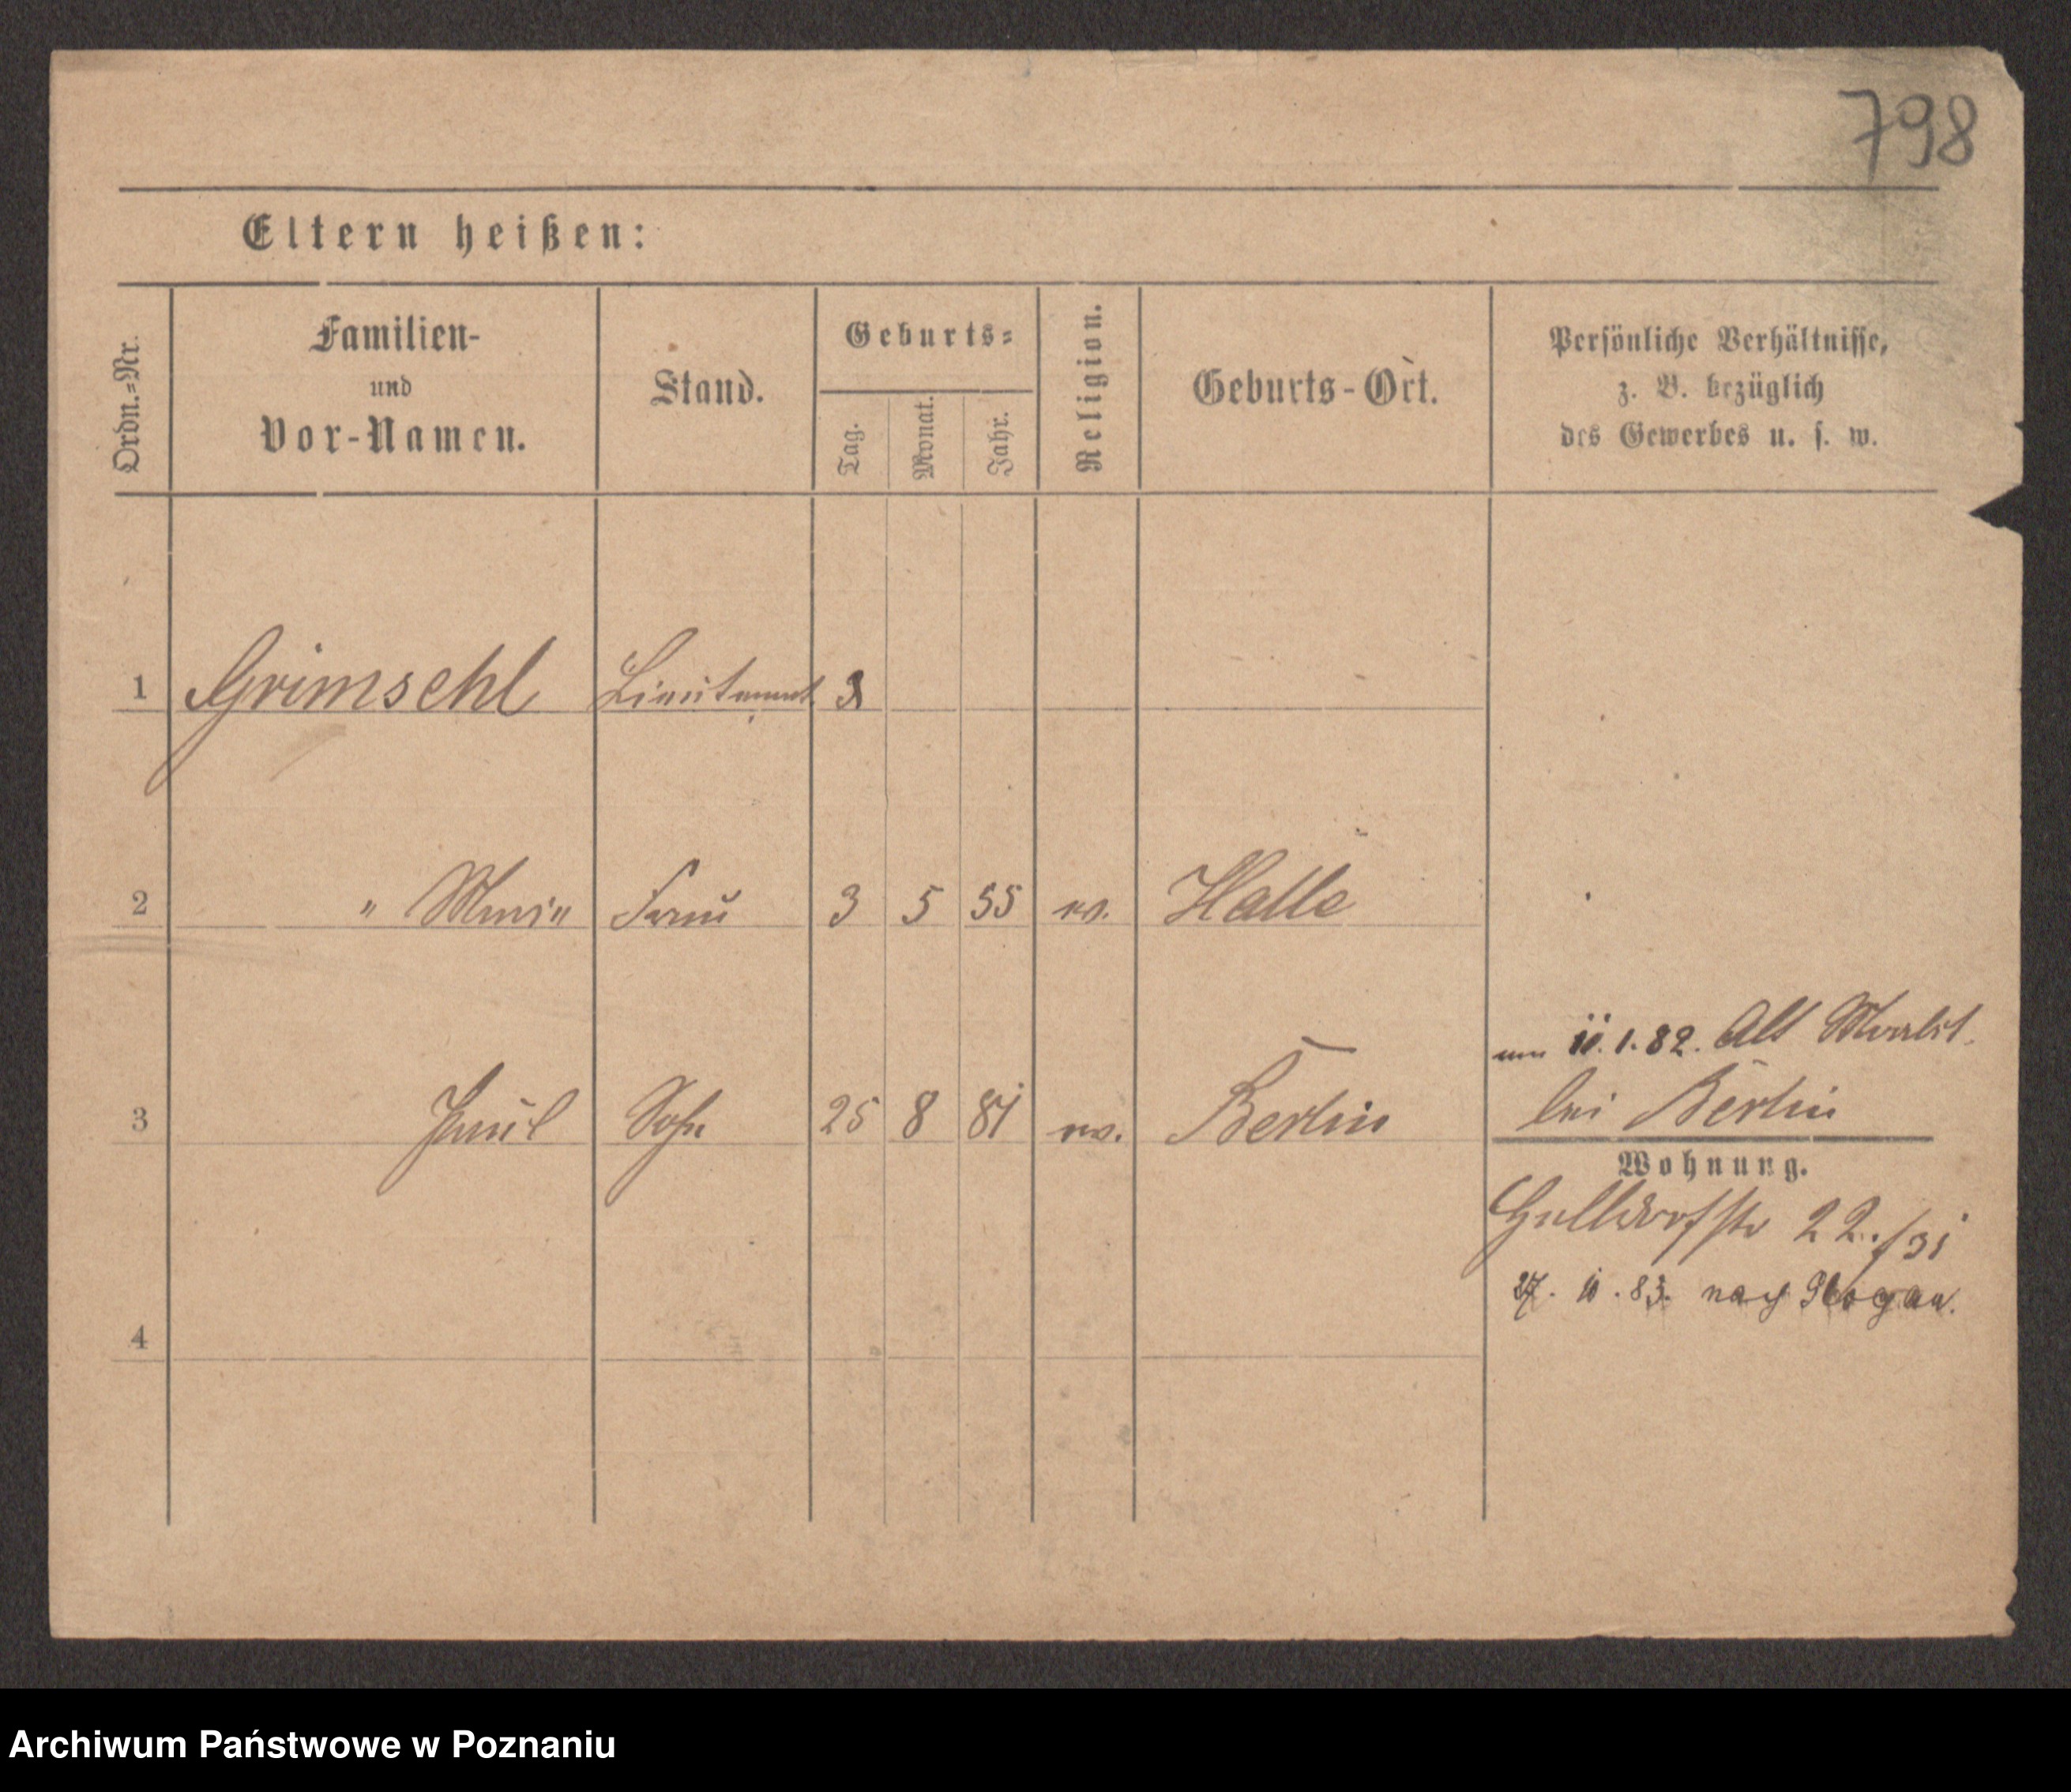 798
Eltern heißen:
Ordn.-Nr.
Familien-
und
Vor-Namen.
Stand.
Geburts-
Tag.
Monat.
Jahr.
Religion.
Geburts-Ort.
Persönliche Verhältnisse,
z. B. bezüglich
des Gewerbes u. s. w.
1 Grimsehl Lieutenant 3
2 " Marie Frau 3 5 55 ev. Halle
am 11.1.82. Alt Moabit.
bei Berlin
3 Paul Sohn 25 8 81 ev. Berlin
Wohnung.
Halldorfstr 22./31
27. 11. 83. nach Glogau.
4
Archiwum Państwowe w Poznaniu